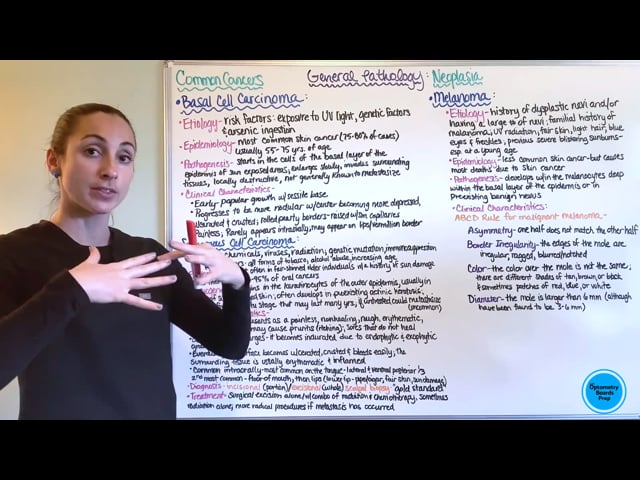 Common Cancers
General Pathology: Neoplasia
• Basal Cell Carcinoma:
• Etiology- risk factors: exposure to UV light, genetic factors
& arsenic ingestion
• Epidemiology- most common skin cancer (75-80% of cases)
usually 55-75 yrs. of age
• Pathogenesis- starts in the cells of the basal layer of the
epidermis of sun exposed areas, enlarges slowly, invades surrounding
tissues, locally destructive, not generally known to metastasize
• Clinical Characteristics-
• Early- popular growth w/ sessile base
• Progresses to be more nodular w/ center becoming more depressed,
ulcerated & crusted; rolled pearly borders- raised w/ sm capillaries
Painless; Rarely appears intraorally, may appear on lips/vermillion border
Cell Carcinoma:
chemicals, viruses, radiation, genetic mutation, immunosuppression
all forms of tobacco, alcohol abuse, increasing age
often in fair-skinned older individuals w/ a history of sun damage
in the keratinocytes of the outer epidermis, usually in
skin; often develop in preexisting actinic keratosis,
stage that may last many yrs, if untreated could metastasize
(uncommon)
as a painless, nonhealing, rough, erythematic,
may cause pruritis (itching); sores that do not heal
it becomes indurated due to endophytic & exophytic
surface becomes ulcerated, crusted & bleeds easily; the
surrounding tissue is usually erythematic & inflamed
• Common intraorally- most common on the tongue- lateral & ventral posterior 1/3
2nd most common- floor of mouth, then lips (lower lip- pipe/cigar, fair skin, sun damage)
-95% of oral cancers
• Diagnosis- incisional (portion)/excisional (whole) scalpel biopsy "gold standard"
• Treatment- Surgical excision alone/w/ combo of radiation & chemotherapy, sometimes
radiation alone; more radical procedures if metastasis has occurred
• Melanoma:
• Etiology- history of dysplastic nevi and/or
having a large # of nevi, familial history of
melanoma, UV radiation, fair skin, light hair, blue
eyes & freckles; previous severe blistering sunburns-
esp. at a young age
• Epidemiology- less common skin cancer- but causes
most deaths due to skin cancer
• Pathogenesis- develops w/in the melanocytes deep
within the basal layer of the epidermis or in
preexisting benign nevus
• Clinical Characteristics:
ABCD Rule for malignant melanoma-
Asymmetry- one half does not match the other half
Border Irregularity- the edges of the mole are
irregular, ragged, blurred/notched
Color- the color over the mole is not the same;
there are different shades of tan, brown, or black
& sometimes patches of red, blue, or white
Diameter- the mole is larger than 6 mm (although
have been found to be 3-6 mm)
Optometry
Boards
Prep